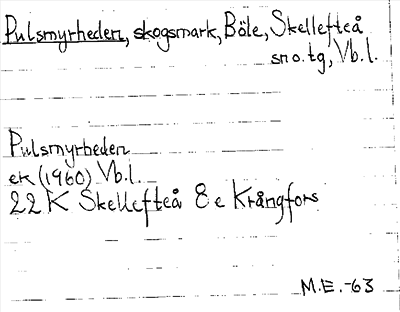 Pulsmyrheden, skogsmark, Böle, Skellefteå
sn o. tg, Vb.l.
Pulsmyrheden
ek (1960) Vb.l.
22 K Skellefteå 8 e Krångfors
M.E. -63